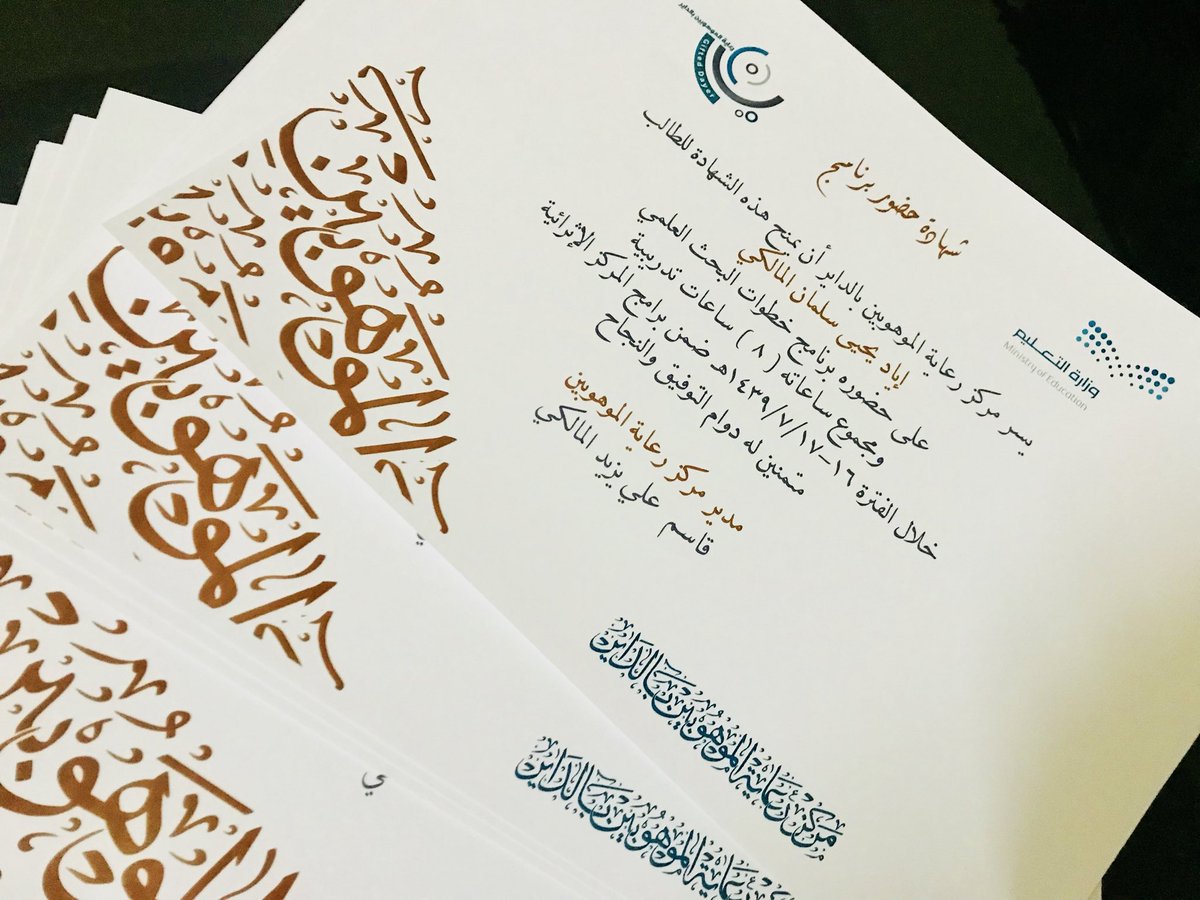 رعاية الموهوبين بالداير
Gifted Dayer
وزارة التعليم
Ministry of Education
شهادة حضور برنامج
يسر مركز رعاية الموهوبين بالداير أن يمنح هذه الشهادة للطالب
إياد يحيى سلمان المالكي
على حضوره برنامج خطوات البحث العلمي
وبمجموع ساعاته (٨) ساعات تدريبية
خلال الفترة ١٦-١٧/٧/١٤٣٩هـ ضمن برامج المركز الإثرائية
متمنين له دوام التوفيق والنجاح
مدير مركز رعاية الموهوبين
قاسم علي يزيد المالكي
مركز رعاية الموهوبين بالداير
رعاية الموهوبين بالداير
الموهوبين
الموهوبين
الموهوبين
ي